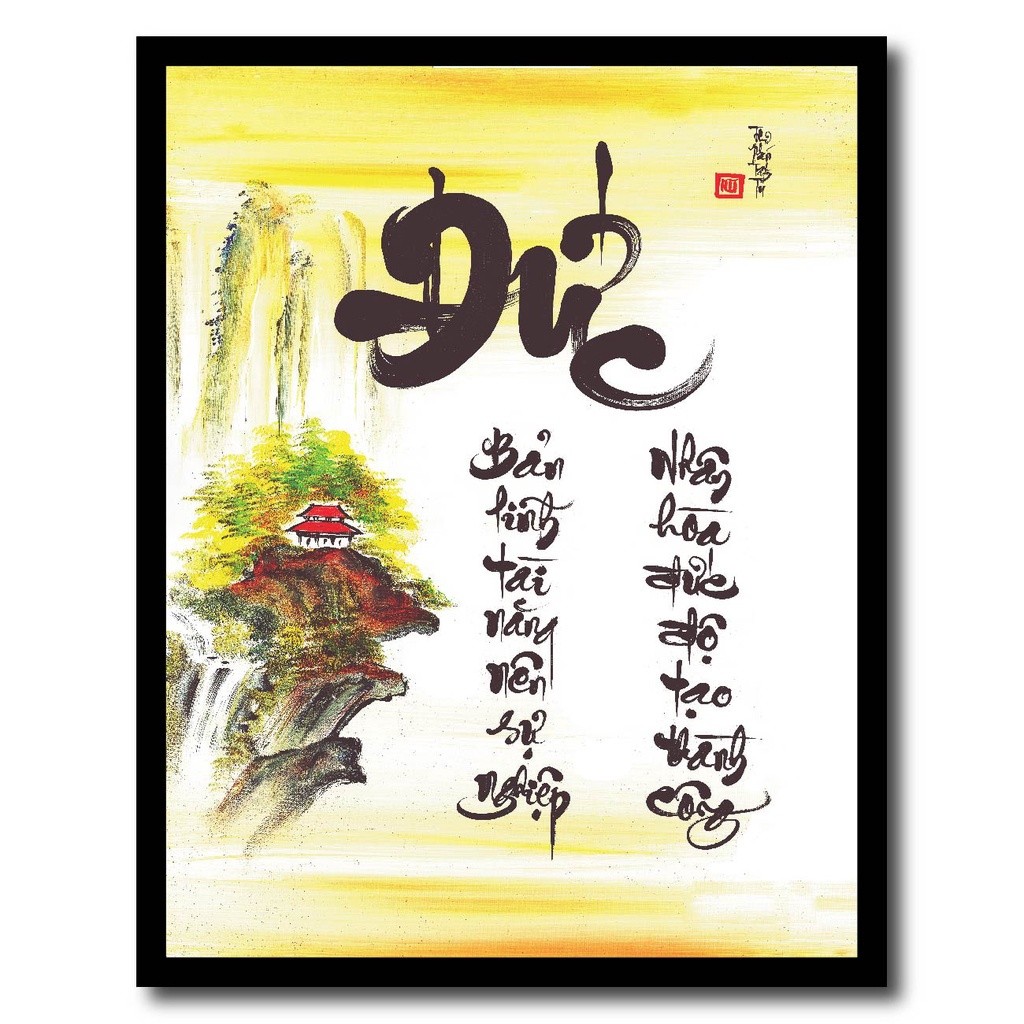 Đức
Bản lĩnh tài năng nên sự nghiệp
Nhân hòa đức độ tạo thành công